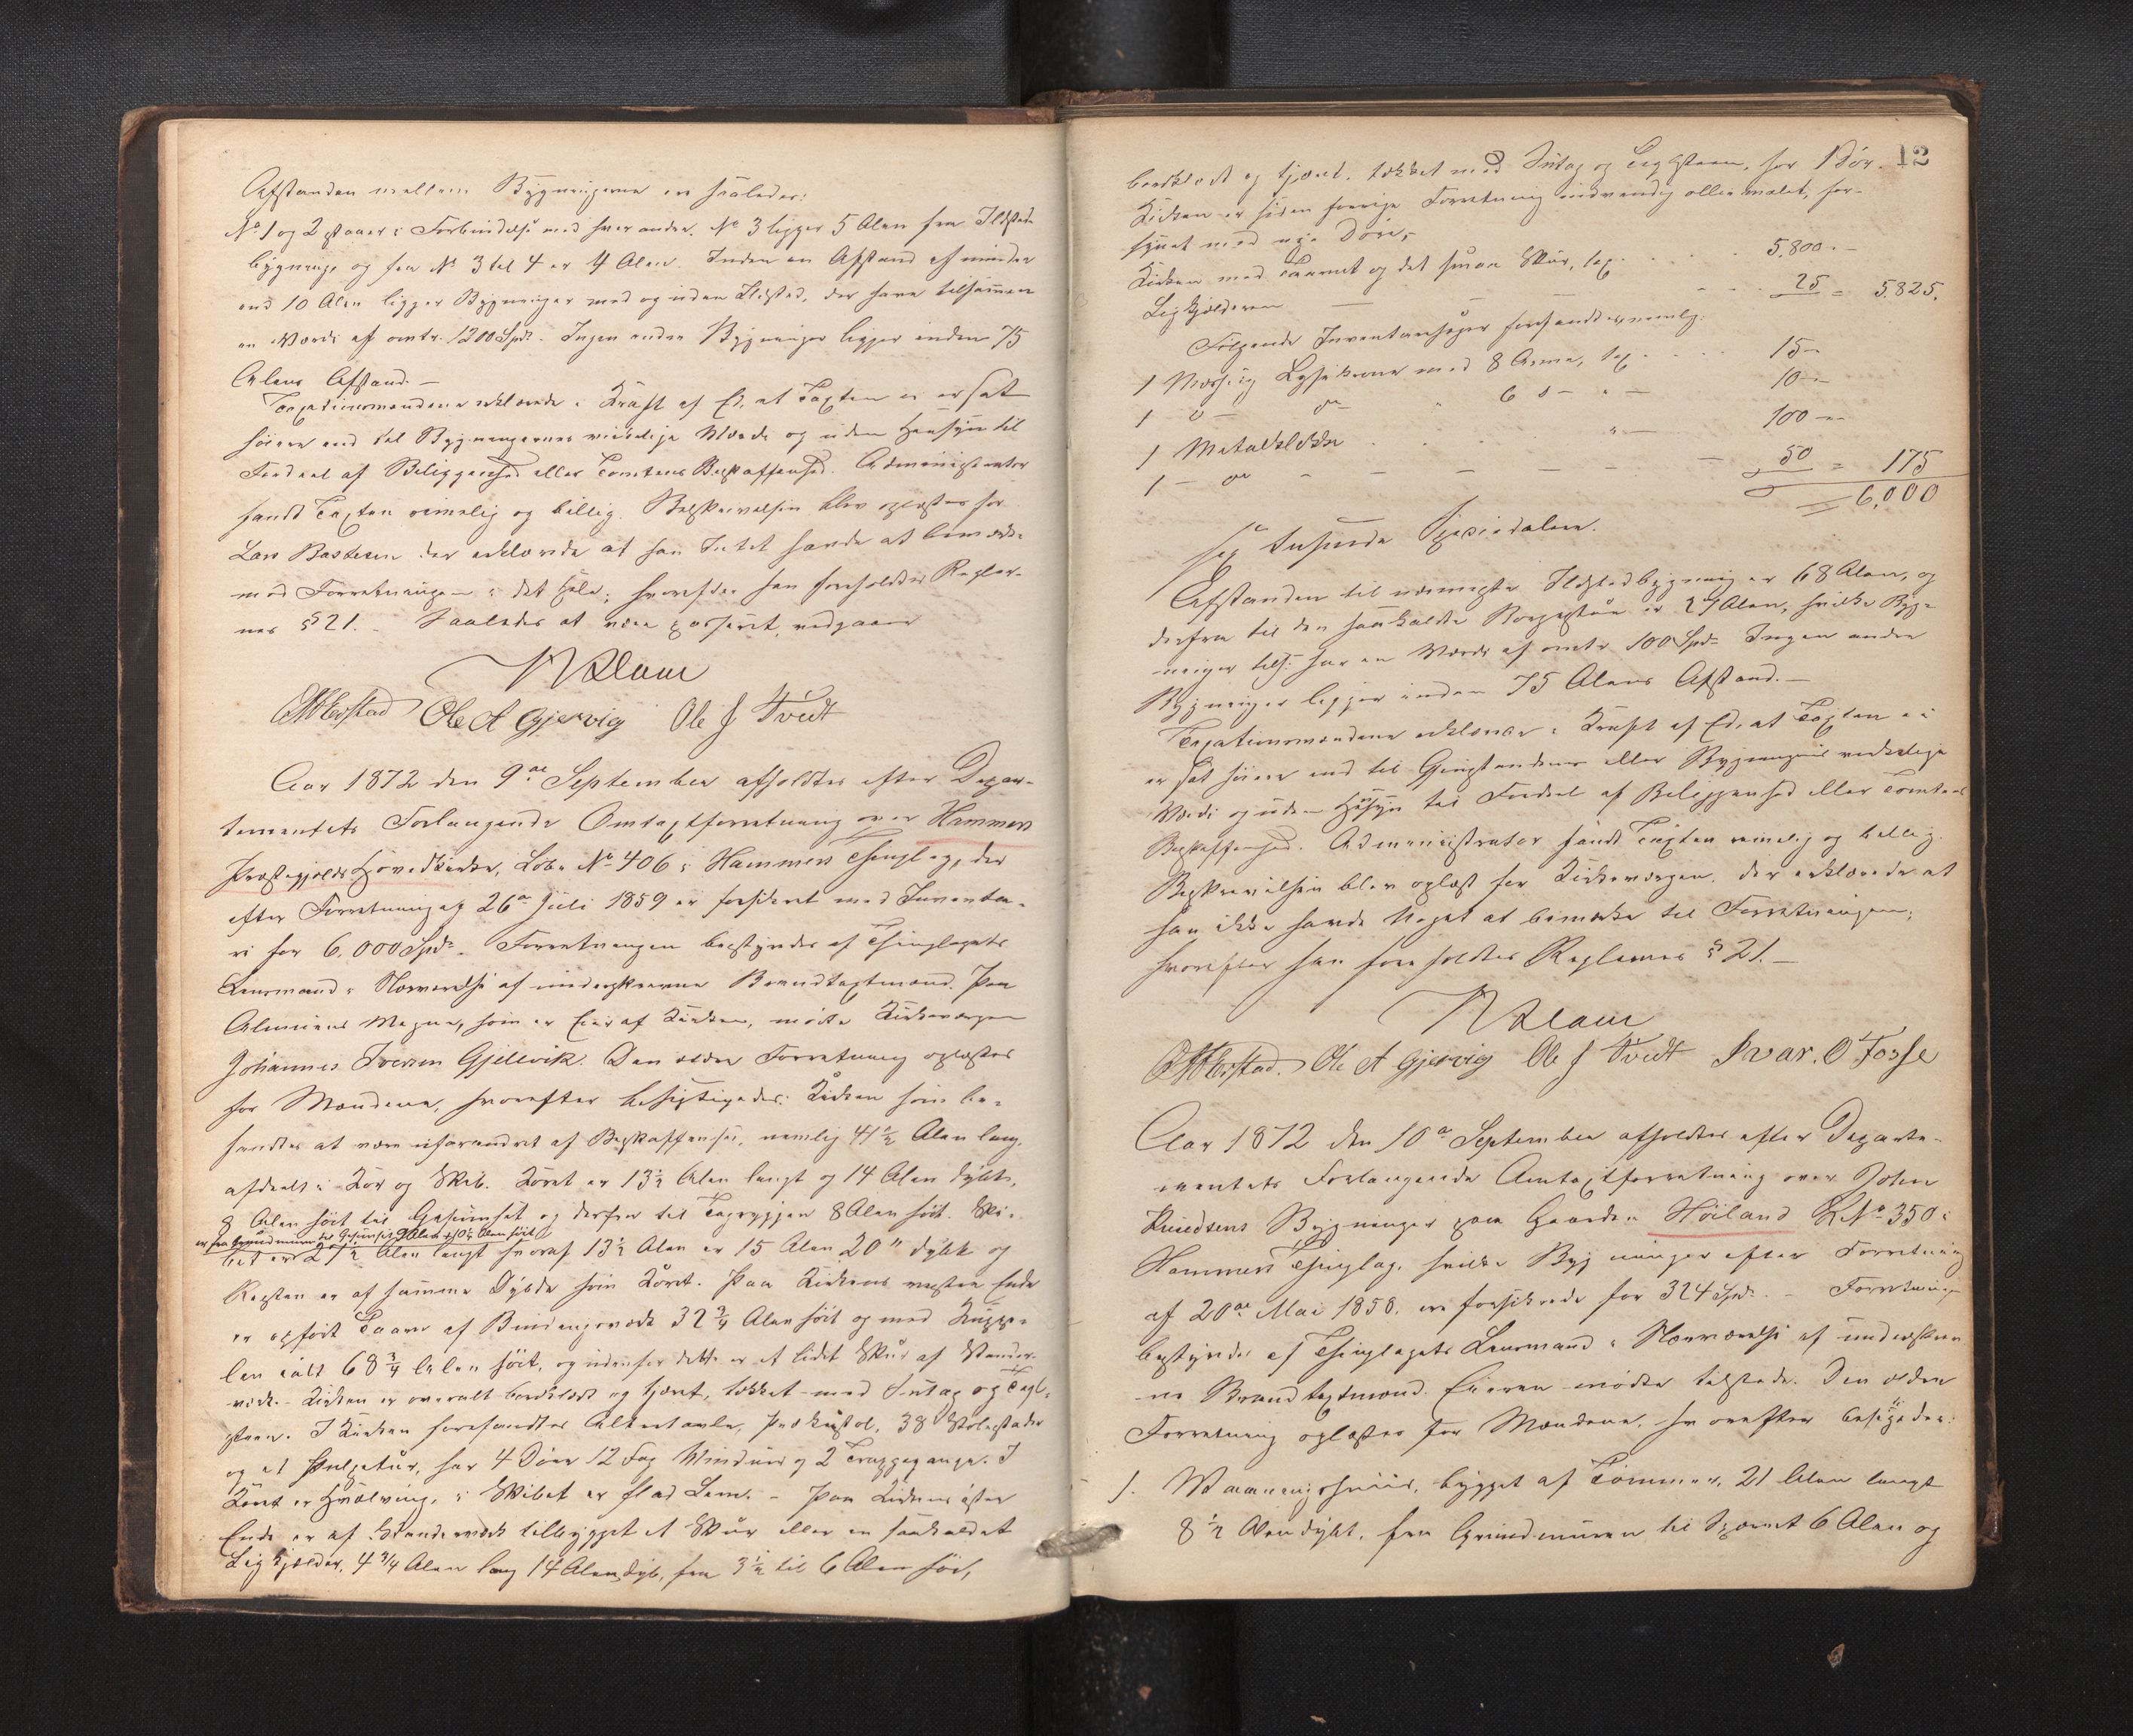 Afstanden mellem Bygningerne er saaledes:
No 1 og 2 staaer i Forbindelse med hverandre. No 3 ligger 5 Alen fra Ildsteds
bygninge og fra No 3 til 4 er 4 Alen. Inden en Afstand af mindre
end 10 Alen ligger Bygninger med og uden Ildsted, der have tilsammen
en Værdi af omtr. 1200 Spd. Ingen anden Bygninger ligger inden 75
Alens Afstand. –
Taxationsmændene erklærede i Kraft af Ed, at Taxten ei er sat
høiere end til Bygningernes virkelige Værdi og uden Hensyn til
Fordeel af Beliggenhed eller Tomtens Beskaffenhed. Administrator
fandt Taxten rimelig og billig. Beskrivelsen blev oplæst for
Lars Bastesen der erklærede at han Intet havde at bemærke
med Forretningen i det Hele; hvorefter han foreholdtes Regler-
nes § 21. – Saaledes at være passeret, vedgaaes
N Dam
Ole A Gjervig Ole J Tvedt
Aar 1872 den 9de September afholdtes efter Depar-
tementets Forlangende Omtaxtforretning over Hammers
Præstegjelds Hovedkirke, Løbe No 406 i Hammers Thinglag, der
efter Forretning af 26de Juli 1859 er forsikret med Inventa-
ri for 6,000 Spd. Forretningen bestyredes af Thinglagets
Lensmand i Nærværelse af underskrevne Brandtaxtmænd. Paa
Alminuens Vegne, som er Eier af Kirken, mødte Kirkeværgen
Johannes Iversen Gjellvik. Den ældre Forretning oplæstes
for Mændene, hvorefter besigtigedes: Kirken som be-
fandtes at være uforandret af Beskaffenhed, nemlig 41 1/2 Alen lang,
afdeelt i Kor og Skib. Koret er 13 1/2 Alen langt og 14 Alen dybt,
8 Alen høit til Gesimset og derfra til Tagryggen 8 Alen høit. Ski-
er fra Grundmuren til Gesimset 9 Alen + 10 1/2 Alen høit
bet er 27 1/2 Alen langt hvoraf 13 1/2 Alen er 15 Alen 20" dybt og
Resten er af samme Dybde som Koret. Paa Kirkens vestre Ende
er opført Taarn af Bindingsværk 32 3/4 Alen høit og med Kuppe-
len ialt 68 3/4 Alen høit, og udenfor dette er et lidet Skur af Stander-
værk. – Kirken er overalt bordklædt og tjæret, tækket med Intag og Tagl-
steen. I Kirken forefandtes Altertavle, Prækestol, 38 Stolestader
og et Pulpetur, har 4 Døre 12 Fag Vinduer og 2 Trappegange. I
Koret er Hvælving, i Skibet er flad Lem. – Paa Kirkens østre
Ende er af Standerværk tilbygget et Skur eller en saakaldet
Ligkjelder, 4 3/4 Alen lang 14 Alen dyb, fra 3 1/2 til 6 Alen høi,
12
bordklædt og tjæret, tækket med Intag og Taglsteen, har 1 Dør.
Kirken er siden forrige Forretning indvendig oliemalet, for-
synet med nye Døre,
Kirken med Taarnet og det smaa Skur, tax. . . . . 5,800. –
Ligkjelderen — — . . . 25 = 5,825.
Følgende Inventarsager forefandtes, nemlig:
1 Messing Lysekrone med 8 Arme, tax. . . . . 15 –
1 do – do " 6 do – " – 10 –
1 Metalklokke . . . . " – 100 –
1 – do – – – – – 50 = 175
6,000
sex tusinde Speciedaler.
Afstanden til nærmeste Ildstedbygning er 68 Alen, og
derfra til den saakaldte Borgestue er 27 Alen, hvilke Byg-
ninger tils: har en Værdi af omtr 100 Spd. Ingen andre
Bygninger ligger inden 75 Alens Afstand. –
Taxationsmændene erklærede i Kraft af Ed, at Taxten ei
er sat høiere end til Gjenstandens eller Bygningens virkelige
Værdi og uden Hensyn til Fordeel af Beliggenhed eller Tomtens
Beskaffenhed. Administrator fandt Taxten rimelig og billig.
Beskrivelsen blev oplæst for Kirkeværgen, der erklærede at
han ikke havde Noget at bemærke til Forretningen;
hvorefter han foreholdtes Reglernes § 21. –
N Dam
Ole A Gjervig Ole J Tvedt Ivar. O Fosse
Aar 1872 den 10de September afholdtes efter Departe-
mentets Forlangende Omtaxtforretning over John
Knudsens Bygninger paa Gaarden Høiland L No 350 i
Hammers Thinglag, hvilke Bygninger efter Forretning
af 20de Mai 1858. ere forsikrede for 324 Spd. – Forretningen
bestyredes af Thinglagets Lensmand i Nærværelse af underskrev-
ne Brandtaxtmænd. Eieren mødte tilstede. Den ældre
Forretning oplæstes for Mændene, hvorefter besigtigedes:
1. Vaaningshuus, bygget af Tømmer, 21 Alen langt
8 1/2 Alen dybt, fra Grundmuren til Sperret 6 Alen og